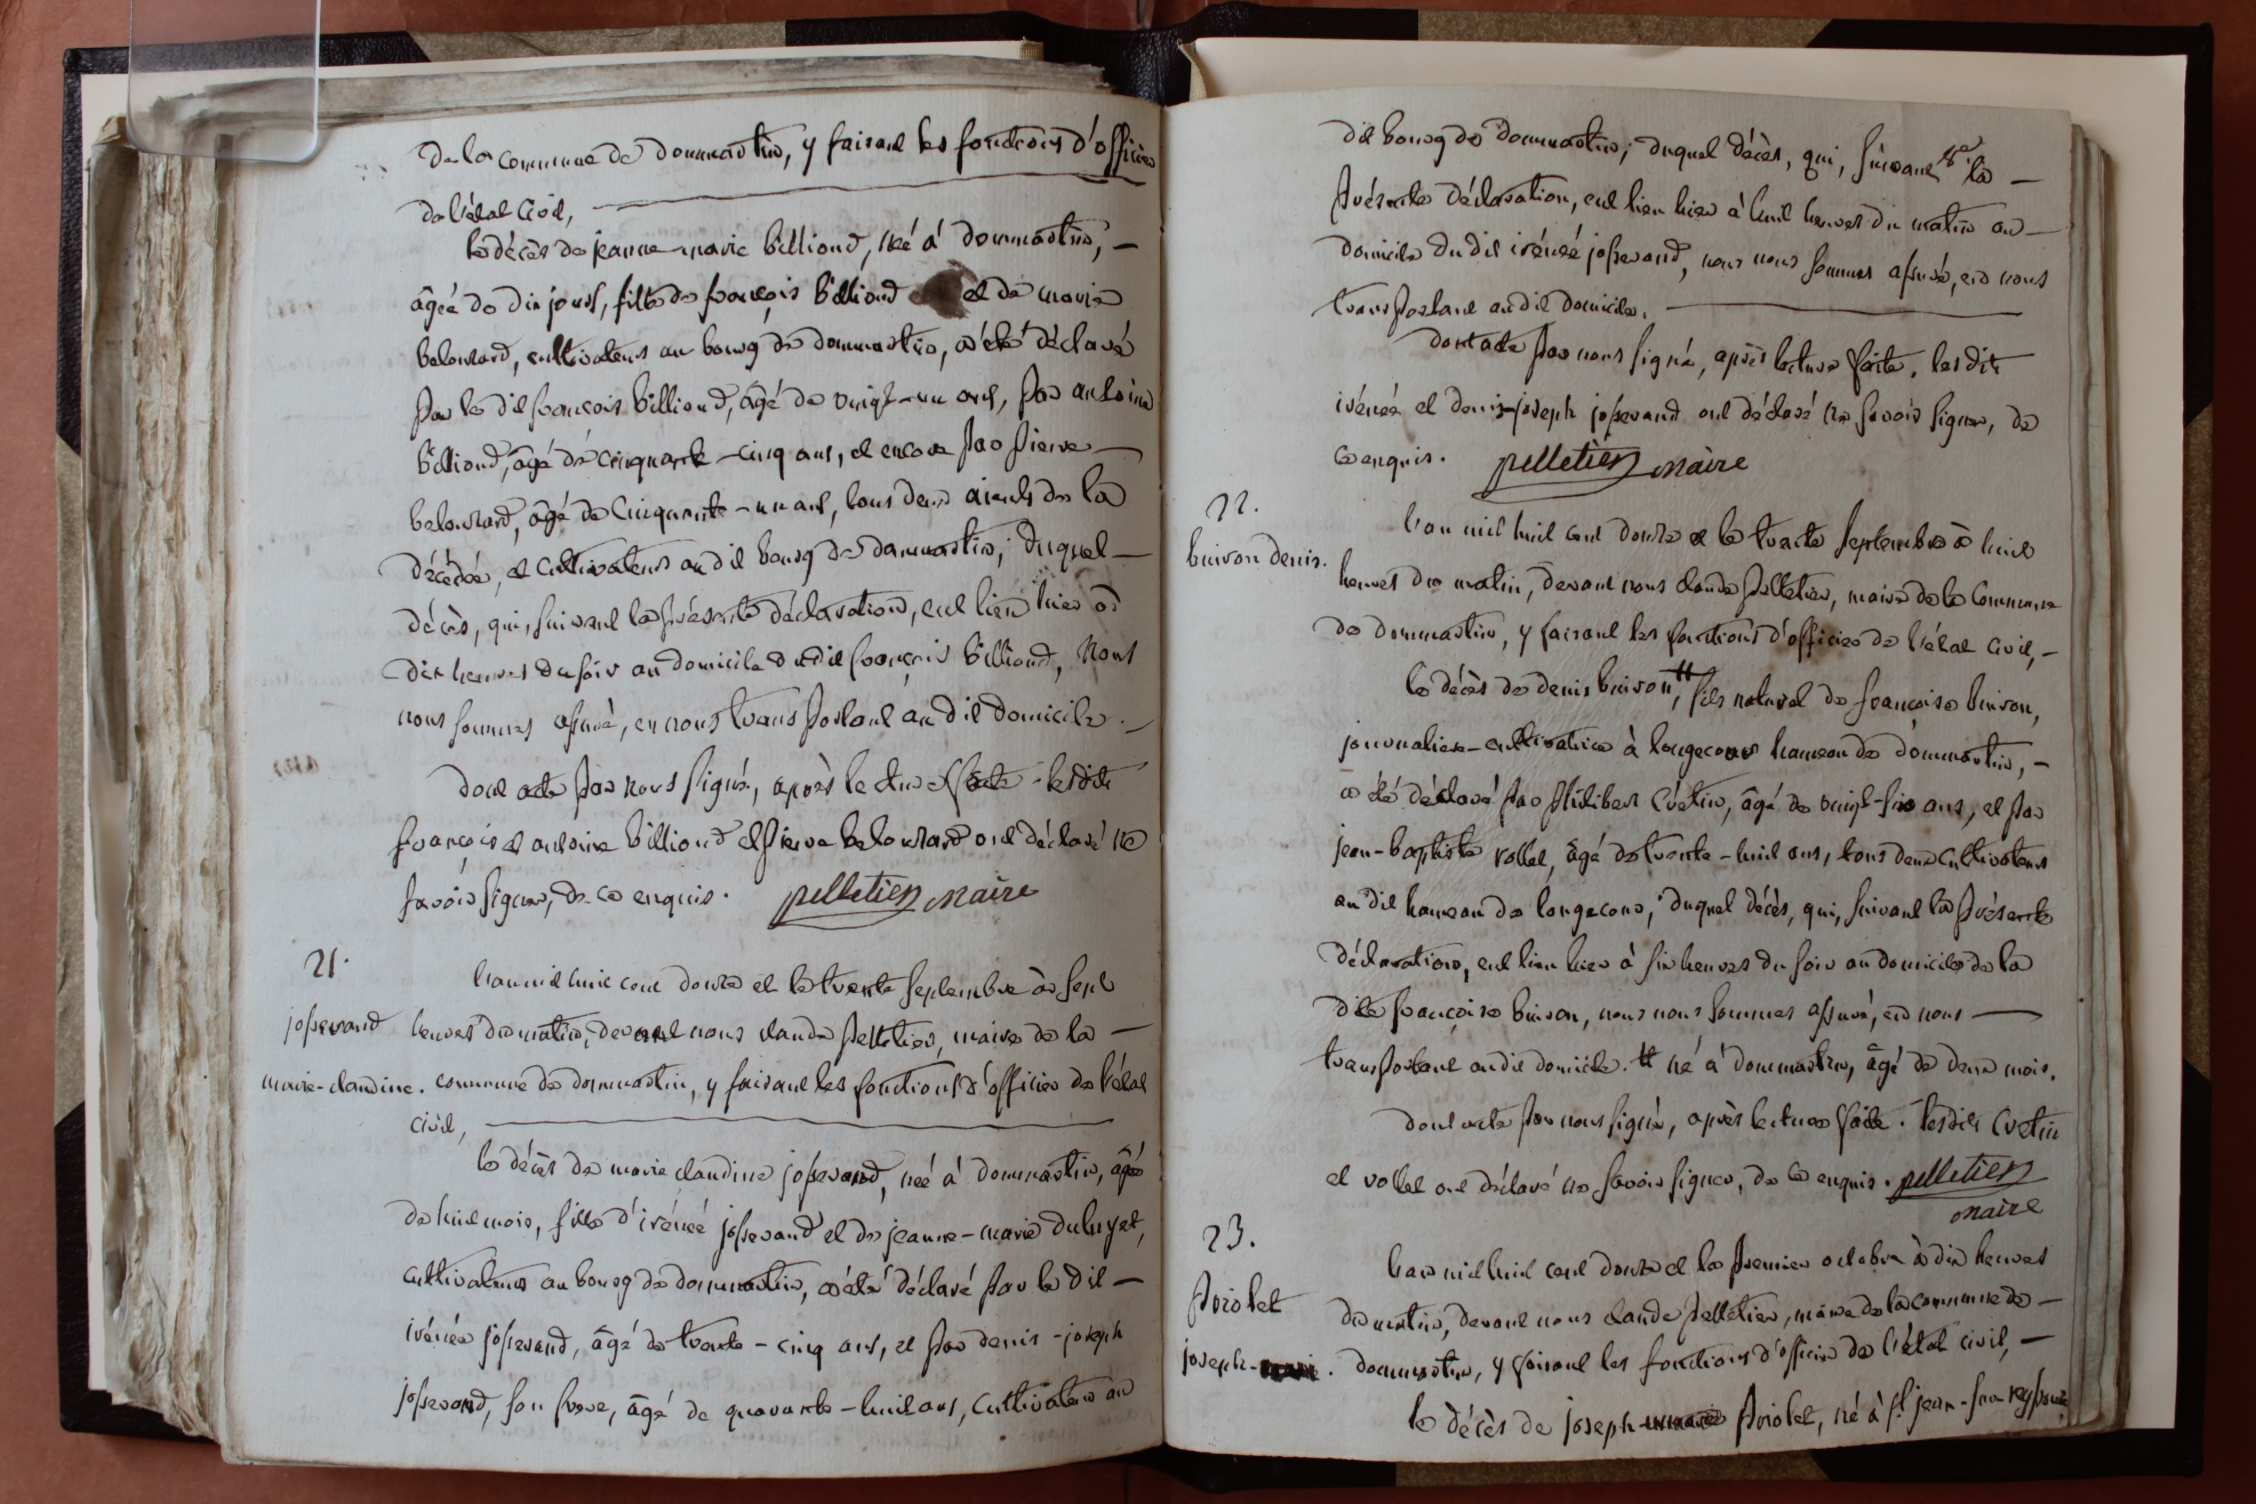 de la commune de dommartin, y faisant les fonctions d'officier
de l'état civil,
le décès de jeanne-marie billioud, née à dommartin,
âgée de dix jours, fille de françois billioud et de marie
belouzard, cultivateurs au bourg de dommartin, a été déclaré
par le dit françois billioud, âgé de vingt-un ans, par antoine
billioud, âgé de cinquante-cinq ans, et encore par pierre
belouzard, âgé de cinquante-un ans, tous deux aieuls de la
décédée, et cultivateurs au dit bourg de dommartin; duquel
décès, qui, suivant la présente déclaration, eut lieu hier à
dix heures du soir au domicile du dit françois billioud, nous
nous sommes assuré, en nous transportant au dit domicile.
dont acte par nous signé, après lecture faite. les dits
françois et antoine billioud et pierre belouzard ont déclaré ne
savoir signer, de ce enquis. pelletier maire
21.
josserand
marie-claudine.
l'an mil huit cent douze et le trente septembre à sept
heures du matin, devant nous claude pelletier, maire de la
commune de dommartin, y faisant les fonctions d'officier de l'état
civil,
le décès de marie claudine josserand, née à dommartin, âgée
de huit mois, fille d'irénée josserand et de jeanne-marie duluyet,
cultivateurs au bourg de dommartin, a été déclaré par le dit
irénée josserand, âgé de trente-cinq ans, et par denis-joseph
josserand, son frere, âgé de quarante-huit ans, cultivateur au
dit bourg de dommartin; duquel décès, qui, suivant la
présente déclaration, eut lieu hier à huit heures du matin au
domicile du dit irénée josserand, nous nous sommes assuré, en nous
transportant au dit domicile.
dont acte par nous signé, après lecture faite. les dits
irénée et denis-joseph josserand ont déclaré ne savoir signer, de
ce enquis. pelletier maire
22.
buiron denis.
l'an mil huit cent douze et le trente septembre à huit
heures du matin, devant nous claude pelletier, maire de la commune
de dommartin, y faisant les fonctions d'officier de l'état civil,
le décès de denis buiron, # fils naturel de françoise buiron,
journaliere-cultivatrice à longecour hameau de dommartin,
a été déclaré par philibert crétin, âgé de vingt-six ans, et par
jean-baptiste vollet, âgé de trente-huit ans, tous deux cultivateurs
au dit hameau de longecour; duquel décès, qui, suivant la présente
déclaration, eut lieu hier à six heures du soir au domicile de la
dite françoise buiron, nous nous sommes assuré, en nous
transportant au dit domicile. # né à dommartin, âgé de deux mois.
dont acte par nous signé, après lecture faite. les dits crétin
et vollet ont déclaré ne savoir signer, de ce enquis. pelletier
maire
23.
Priolet
joseph-marie.
l'an mil huit cent douze et le premier octobre à dix heures
du matin, devant nous claude pelletier, maire de la commune de
dommartin, y faisant les fonctions d'officier de l'état civil,
le décès de joseph-marie Priolet, né à st jean-sur-reyssouze